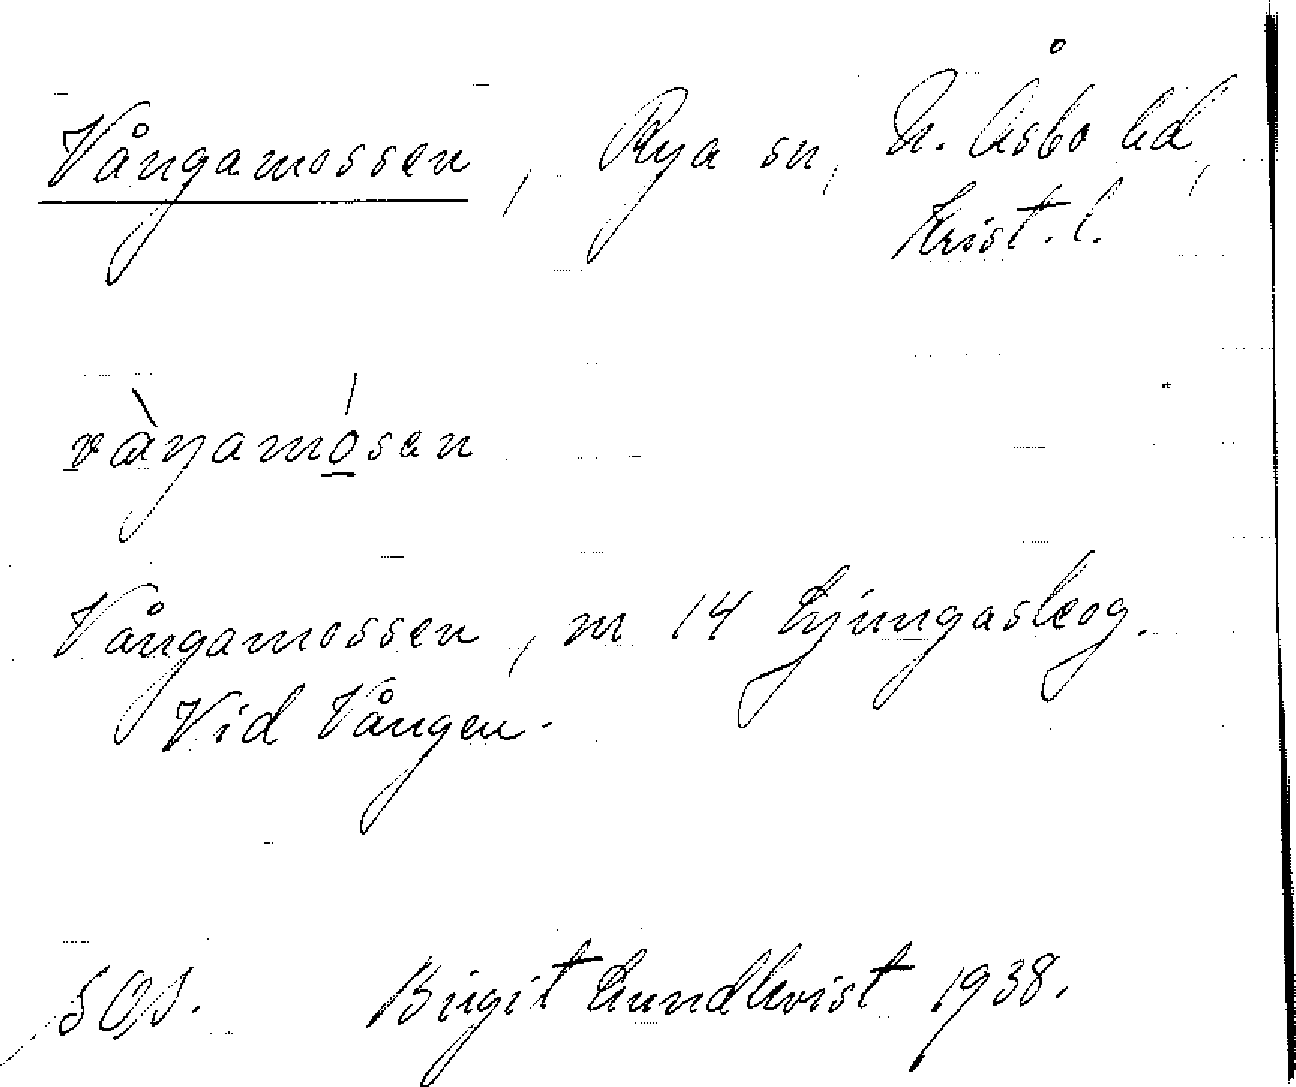 Vångamossen, Rya sn, N. Åsbo hd,
Krist. l.
vàŋamósen
Vångamossen, m 14 Ljungaskog.
Vid Vången.
SOS. Birgit Lundkvist 1938.